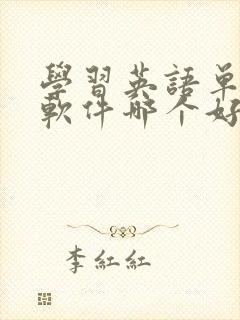 學習英語單
軟件哪个好
李紅紅